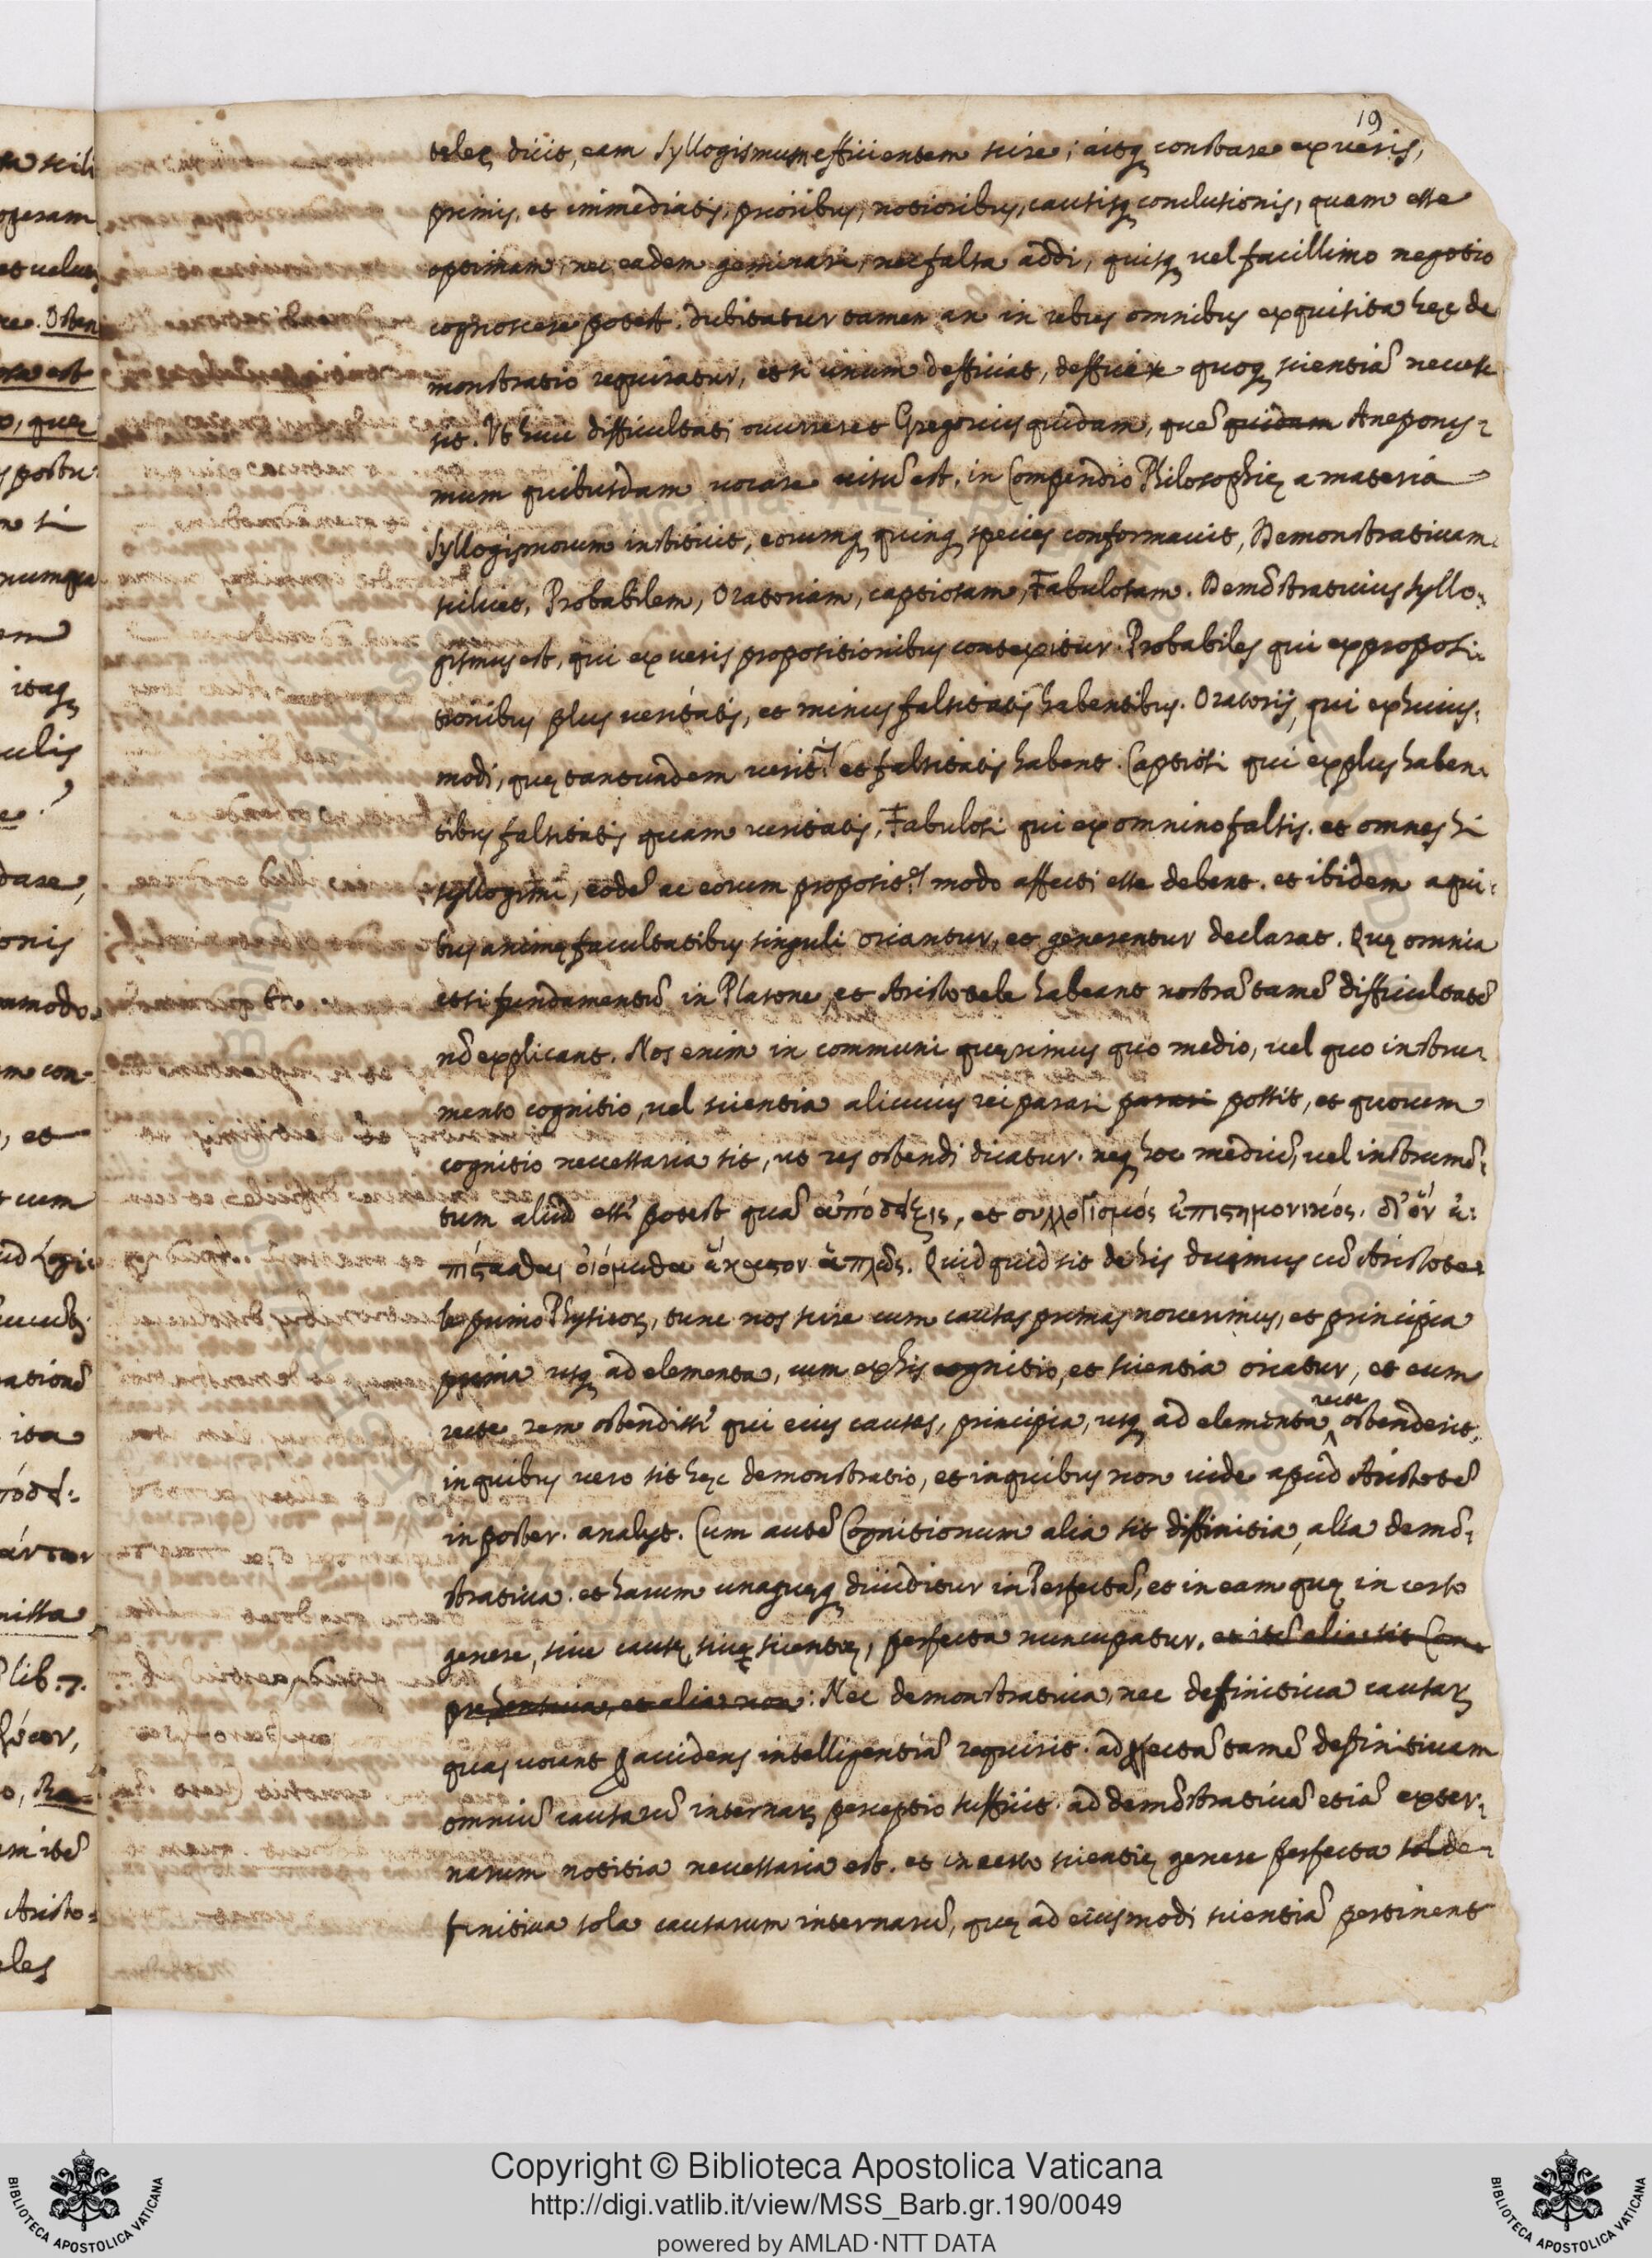 19
teles dicit, eam Syllogismum efficientem scire; aitq constare ex veris,
primis, et immediatis, prioribus, notioribus, causisq conclusionis, quam esse
optimam, nec eadem geminari, nec falsa addi, quisq vel facillimo negotio
cognoscere potest. dubitatur tamen an in rebus omnibus exquisita hęc de
monstratio requiratur, et si unum deficiat, deficere quoq scientiã necesse
sit. Ut huic difficultati occurreret Gregorius quidam, quẽ quidam Aneponys-
mum quibusdam vocare visũ est, in Compendio Philosophię a materia
Syllogismorum instituit, eorumq quinq species conformavit, Demonstrativam
scilicet, Probabilem, Oratoriam, captiosam, Fabulosam. Demõstrativus syllo-
gismus est, qui ex veris propositionibus contexitur. Probabiles qui ex proposi-
tionibus plus veritatis, et minus falsitatis habentibus. Oratorij, qui ex huius-
modi, quę tantundem verit.is et falsitatis habent. Captiosi qui ex plus haben-
tibus falsitatis quam veritatis, Fabulosi qui ex omnino falsis. et omnes hi
syllogismi, eodẽ ac eorum proposit.es modo affecti esse debent. et ibidem a qui-
bus animę facultatibus singuli oriantur, et generentur declarat. Quę omnia
etsi fundamentũ in Platone, et Aristotele habeant nostrã tamẽ difficultatẽ
nõ explicant. Nos enim in communi quęrimus quo medio, vel quo instru-
mento cognitio, vel scientia alicuius rei parari parari possit, et quorum
cognitio necessaria sit, ut res ostendi dicatur. neq hoc mediũ, vel instrumẽ-
tum aliud esse potest quã ἀπόδειξις, et συλλογισμός ἐπιστημονικός. δι' ὅν ἐ-
πίστασθαι οἰόμεθα ἕκαστον ἁπλῶς. Quid quid sit de his ducimus cũ Aristote-
le primo Physicor, tunc nos scire cum causas primas noverimus, et principia
prima usq ad elementa, cum ex his cognitio, et scientia oriatur, et eum
recte rem ostendisse qui eius causas, principia, usq ad elementa recte ostenderit,
in quibus vero sit hęc demonstratio, et in quibus non vide apud Aristotẽ
in poster. analyt. Cum autẽ Cognitionum alia sit diffinitia, alia demõ-
strativa. et harum unaquęq dividitur in Perfectã, et in eam quę in certo
genere, sive causę, sive scientię, perfecta nuncupatur, et itẽ alia sit Com-
prehensiva, et alia non: Nec demonstrativa, nec definitiva causar
quas vocant p accidens intelligentiã requirit. ad pfectã tamẽ definitivam
omniũ causarũ internar perceptio sufficit. ad demõstrativã etiã exter-
narum notitia necessaria est. et in certo scientię genere perfecta sol de-
finitiva sola causarum internarũ, quę ad eiusmodi scientiã pertinent
Copyright © Biblioteca Apostolica Vaticana
http://digi.vatlib.it/view/MSS_Barb.gr.190/0049
powered by AMLAD·NTT DATA
BIBLIOTECA APOSTOLICA VATICANA
BIBLIOTECA APOSTOLICA VATICANA